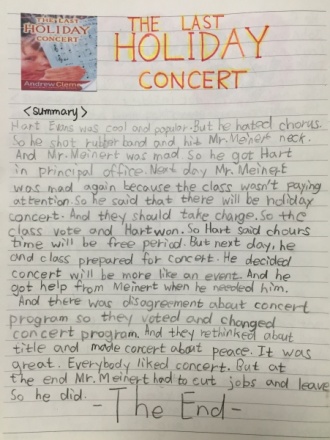 THE LAST
HOLIDAY
CONCERT
Andrew Cleme
THE LAST
HOLIDAY
CONCERT
<Summary>
Hart Evans was cool and popular. But he hated chorus.
So he shot rubber band and hit Mr. Meinert neck.
And Mr. Meinert was mad. So he got Hart
in principal office. Next day Mr. Meinert
was mad again because the class wasn't paying
attention. So he said that there will be holiday
concert. And they should take charge. So the
class vote and Hart won. So Hart said chours
time will be free period. But next day, he
and class prepared for concert. He decided
concert will be more like an event. And he
got help from Meinert when he needed him.
And there was disagreement about concert
program so they voted and changed
concert program. And they rethinked about
title and made concert about peace. It was
great. Everybody liked concert. But at
the end Mr. Meinert had to cut jobs and leave
So he did.
-The End-